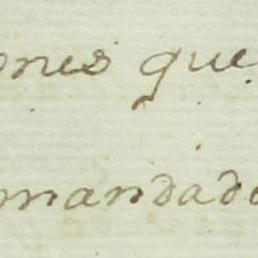 ones que
mandado